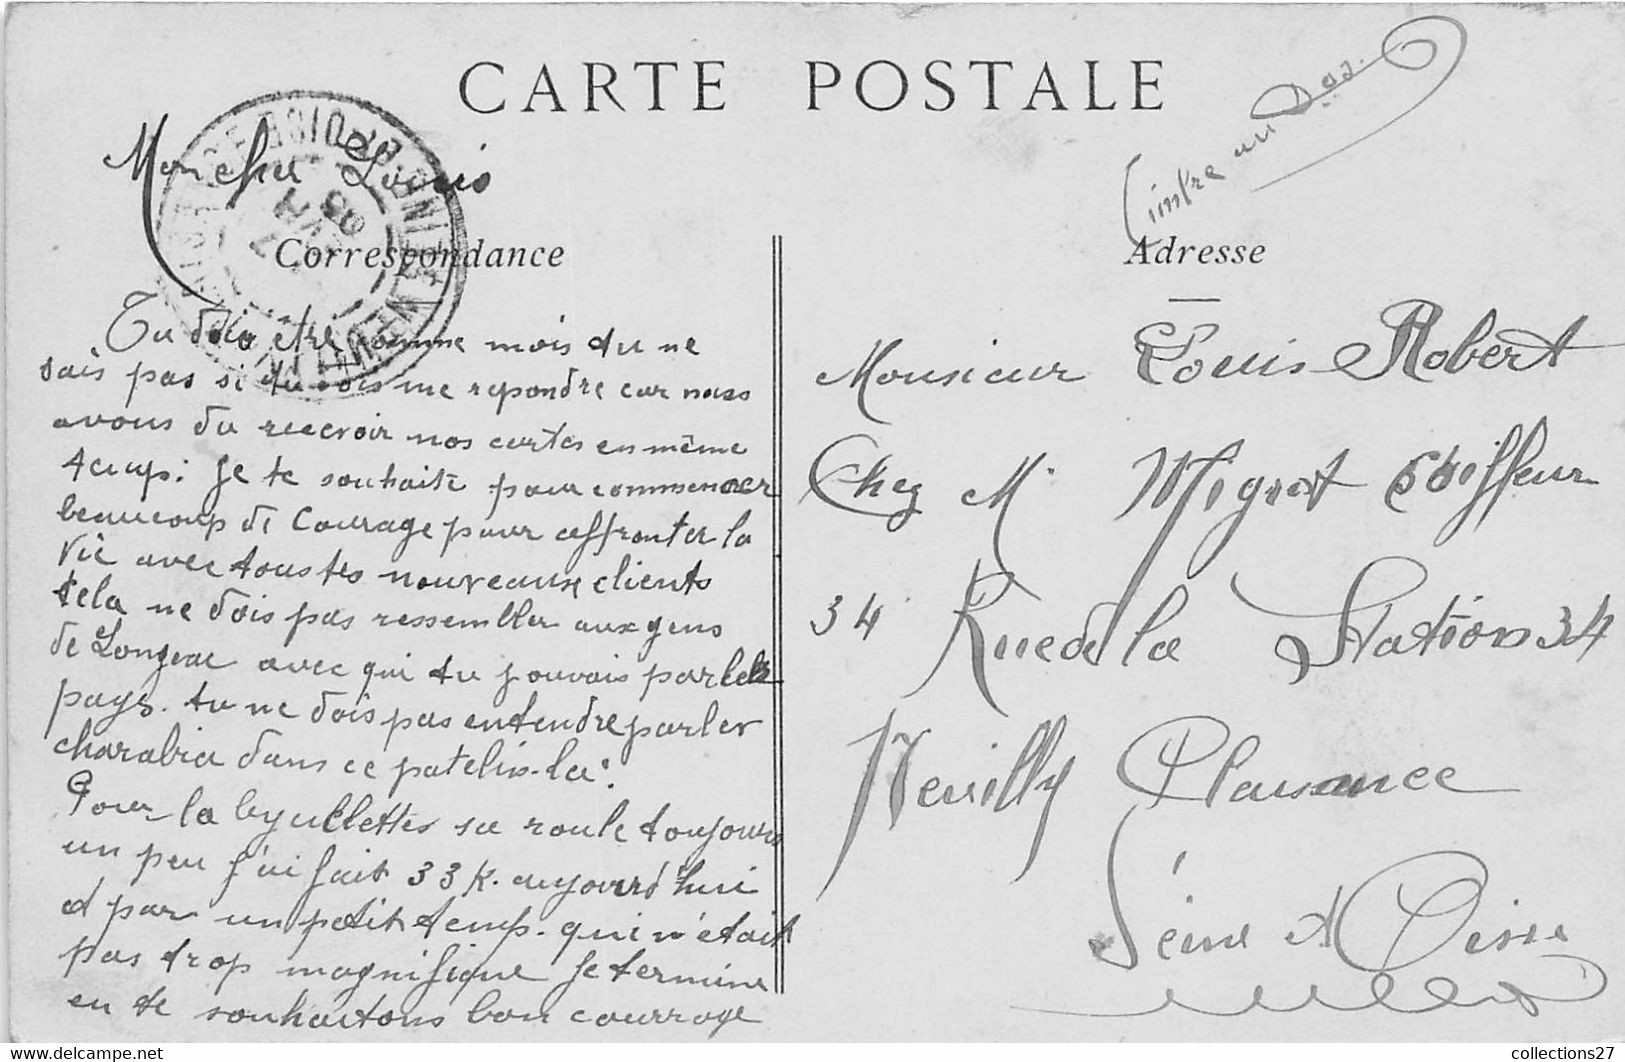 CARTE POSTALE
Mon cher Louis
Timbre au Dos.
Correspondance
Tu dois être comme mois tu ne
sais pas si tu dois me repondre car nous
avons du recevoir nos cartes en même
temp: Je te souhaite pour commencer
beaucoup de courage pour affronter la
vie avec tous tes nouveaux clients
cela ne dois pas ressembler aux gens
de Longeac avec qui tu pouvais parler
pays. tu ne dois pas entendre parler
charabia dans ce patelin-la:
Pour la byçullettes sa roule toujours
un peu J'ai fait 33 K. aujourd'hui
et par un petit temp. qui n'était
pas trop magnifique Je termine
en te souhaitons bon courrage
Adresse
Monsieur Louis Robert
Chez Mr Mignot Coiffeur
34 Rue de la Station 34
Neuilly Plaisance
Seine et Oise
collections27